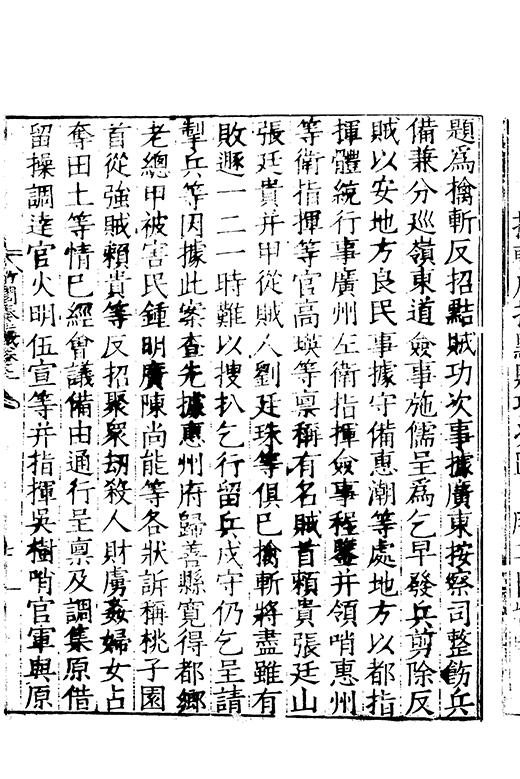 題為擒斬反招黠賊功次事據廣東按察司整飭兵
備兼分巡嶺東道僉事施儒呈為乞早發兵剪除反
賊以安地方良民事據守備惠潮等處地方以都指
揮體統行事廣州左衛指揮僉事程鑒并領哨惠州
等衛指揮等官高瑛等稟稱有名賊首賴貴張廷山
張廷貴并甲從賊人劉廷珠等俱已擒斬將盡雖有
敗遯一二一時難以搜扒乞行留兵戍守仍乞呈請
掣兵等因據此案查先據惠州府歸善縣寬得都鄉
老總甲被害民鍾明廣陳尚能等各狀訴稱桃子園
首從強賊賴貴等反招聚眾劫殺人財虜姦婦女占
奪田土等情已經會議備由通行呈稟及調集原借
留操調達官火明伍宣等并指揮吳樹哨官軍與原